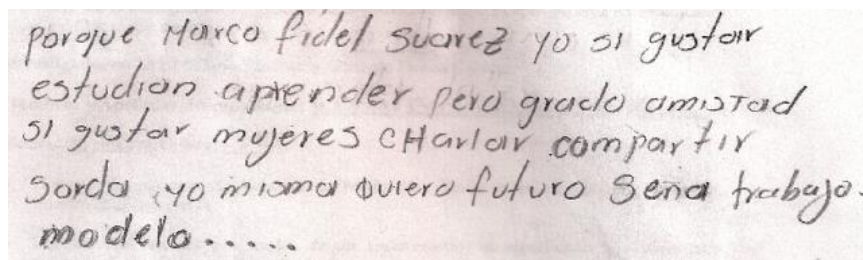 porque Marco fidel suarez yo si gustar
estudian aprender pero grado amistad
si gustar mujeres CHarlar compartir
sorda, yo misma quiero futuro Sena trabajo.
modelo.....